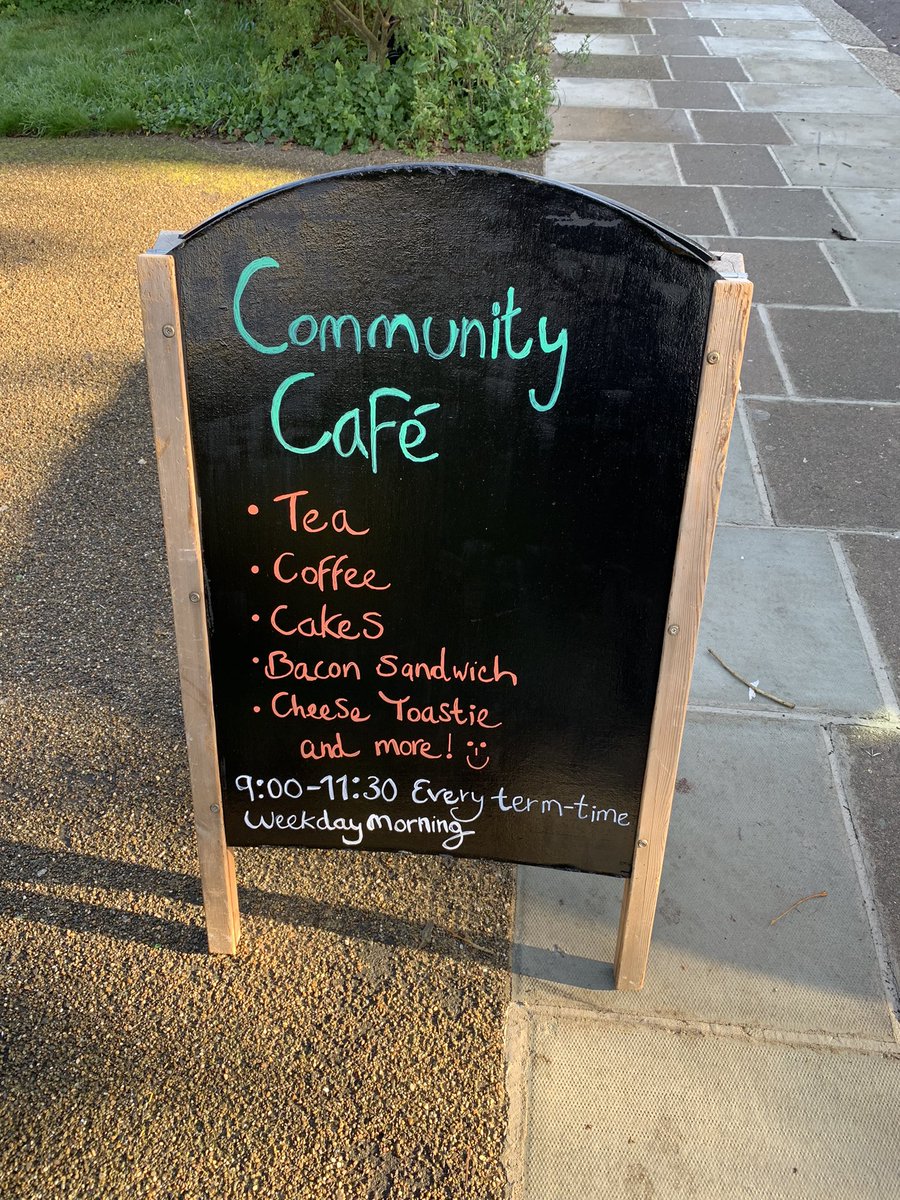 Community
Café
• Tea
• Coffee
• Cakes
• Bacon Sandwich
• Cheese Toastie
and more! :)
9:00-11:30 Every term-time
Weekday Morning